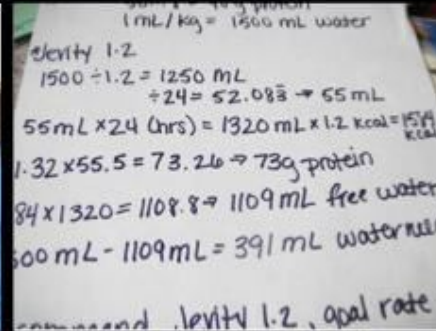 1 mL/kg = 1500 mL water
Jevity 1.2
1500 ÷ 1.2 = 1250 mL
÷24 = 52.083̄ → 55 mL
55mL × 24 (hrs) = 1320 mL × 1.2 kcal = 1584 kcal
1.32 × 55.5 = 73.26 → 73g protein
84 × 1320 = 1108.8 → 1109 mL free water
500 mL - 1109 mL = 391 mL water
Jevity 1.2, goal rate